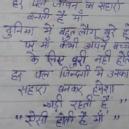 हर पल जीवन का सहारा
बनती है माँ
दुनिया में बहुत लोग बुरे है
पर माँ कभी अपने बच्चे
के लिए बुरा नही होती
हर पल जिन्दगी में उसका
सहारा बनकर हमेशा
खड़ी रहती है
"ऐसी होती है माँ"